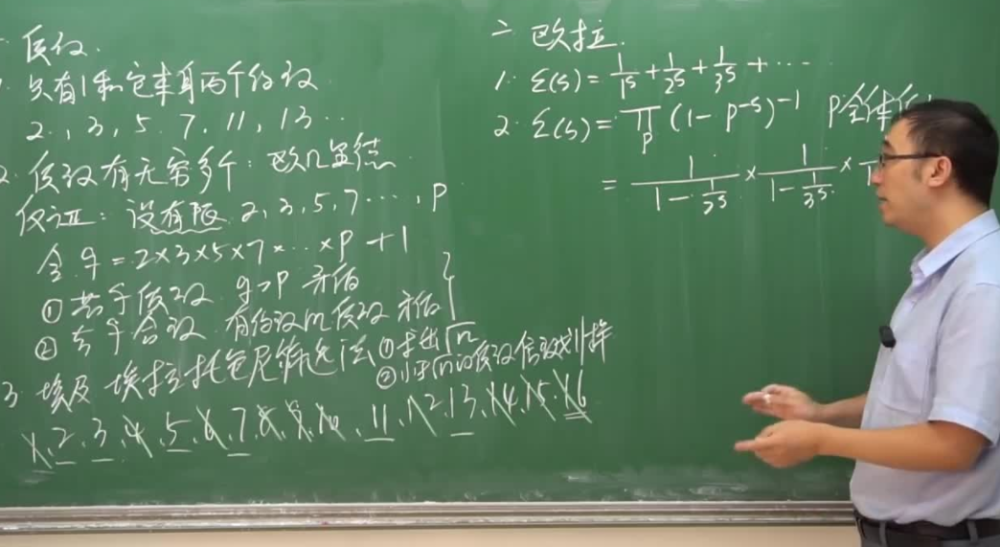 质数.
只有1和它本身两个约数
2.,3,5.7.11,13...
2.质数有无穷多个:欧几里德
反证:设有限 2,3,5,7...,p
令 q=2×3×5×7×...×p+1
①若q质数 q>p 矛盾
②若q合数 有约数m质数 矛盾
3 埃及 埃拉托色尼筛选法 ①找出√n
②小于√n的质数倍数划掉
1.2.3.4.5.6.7.8.9.10.11.12.13.14.15.16
二 欧拉.
1. Σ(s)=1/1^s+1/2^s+1/3^s+...
2. Σ(s)=∏_p(1-p^-s)^-1 p全体质
=1/(1-1/2^s)×1/(1-1/3^s)×